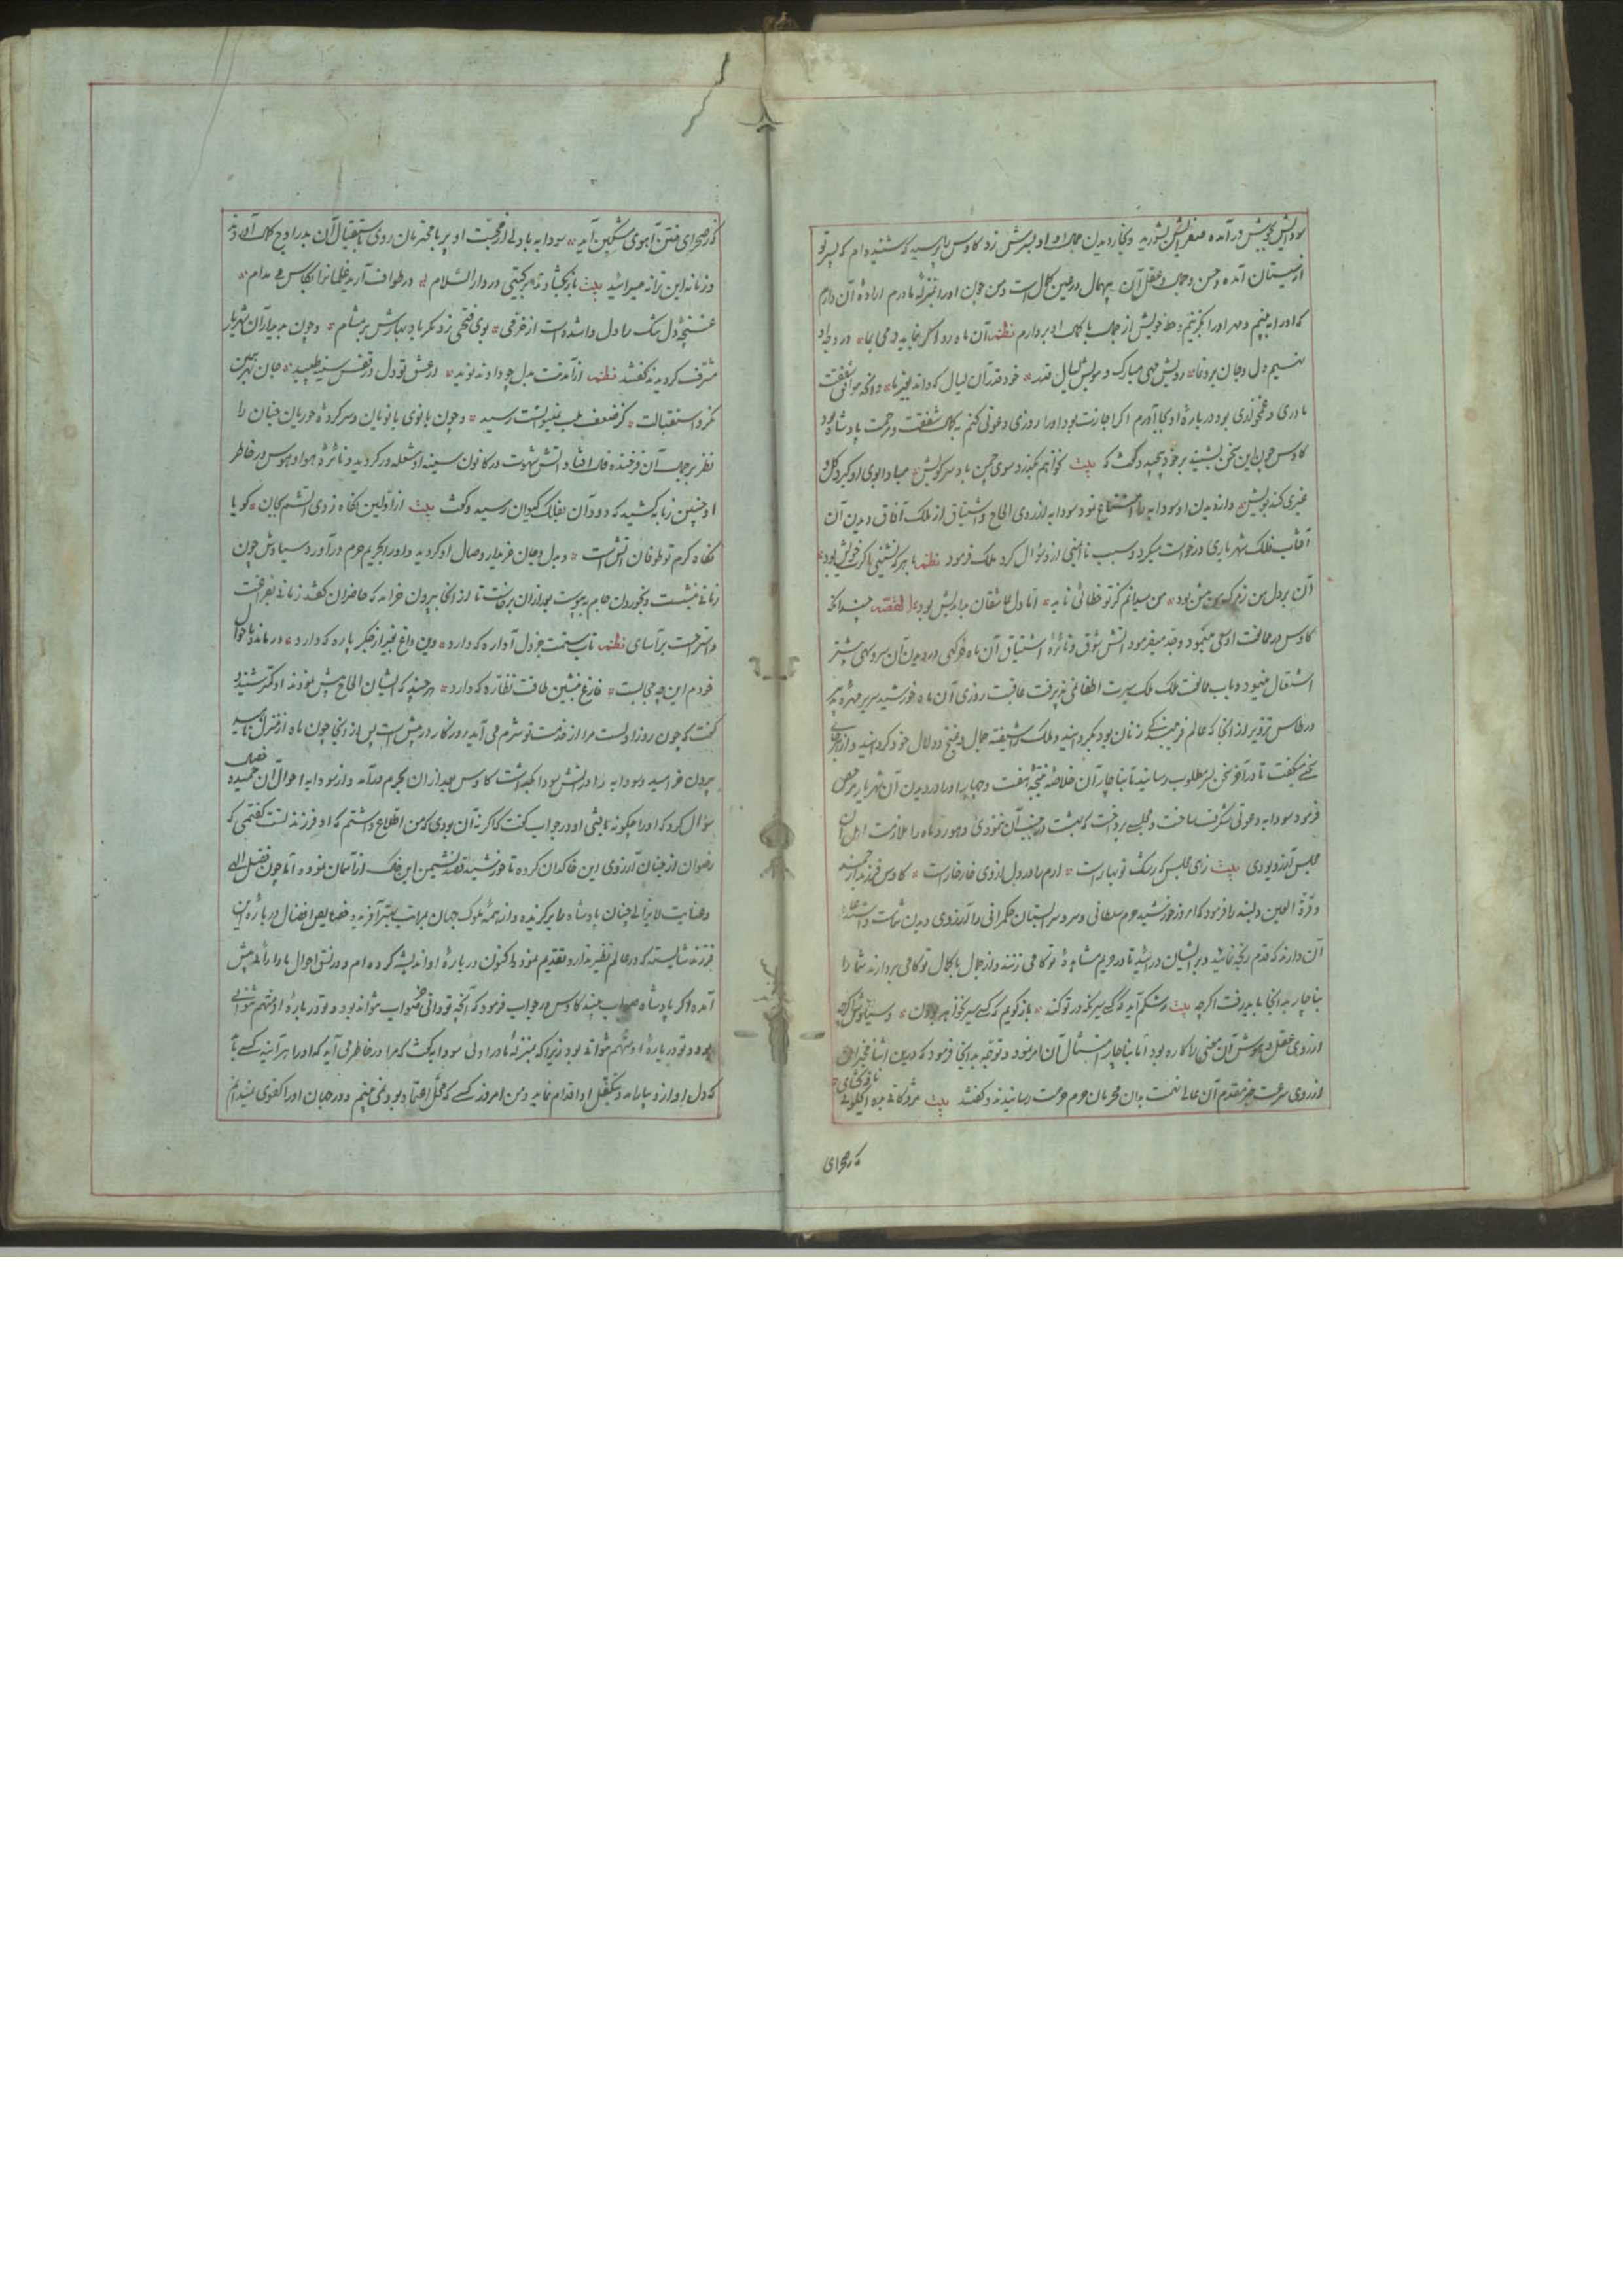 سودایش بجوش در آمده مغز سرش بشورید و بکار دیدن جمال او او بسرش زد کاوس را پرسید که شنیده ام که پسر تو
از سیستان آمده و حسن و جمال و عقل آن بهمال در عین کمال است و من چون او را بمنزله مادرم اراده آن دارم
که او را به بینم و مهر او را بگزینم و حظ خویش از جمال با کمال او بردارم نظم آن ماه رو اگر نماید در وجد او
نسیم دل و جان برونما رویش مهی مبارک و مویش لیال قدر خود قدر آن لیال که داند بغیر ما و آنچه موافق شفقت
مادری و غمخوری بود درباره او بجا آورم اگر اجازت بود او را روزی دعوتی کنم به کمال شفقت و مرحمت پادشاه بود
کاوس چون این سخن بشنید بر خود پیچید و گفت که بیت نخواهم بگذرد سوی چمن باد سر کویش مبادا بوی او گیرد گل و
غیری کند بویش و از دیدن او سودابه را امتناع نمود سودابه از روی الحاح و اشتیاق از ملک آفاق دیدن آن
آفتاب فلک شهریاری درخواست میکرد و سبب ناایمنی ازو سؤال کرد ملک فرمود نظم با هر که نشینی اگرت خویش بود
آن بر دل من زخم بود من میدانم کز تو خطائی ناید اما دل عاشقان بداندیش بود القصه چندانکه
کاوس در ممانعت او سعی مینمود و جد میفرمود آتش شوق و نائره اشتیاق آن ماه خرگهی در دیدن آن سرو سهی بیشتر
اشتعال مینمود و باب ممانعت ملک ملک سیرت اطفائی نپذیرفت عاقبت روزی آن ماه خورشید سریر مهره تدبیر
در طاس تزویر از آنجا که عالم فریبندگی زنان بود بگردانید و ملک را شیفته جمال و غنج و دلال خود گردانید و از هر جائی
سخنی میگفت تا در آخر سخن بر مطلوب رسانید تا بناچار آن خلاصه
فرمود سودابه دعوتی شگرف ساخت و مجلسی پرداخت که بهشت در جنب آن نمودی و حور و ماه را ملازمت اهل آن
مجلس آرزو بودی بیت زهی مجلس که رشک نوبهار است ارم را در دل از وی خار خار است کاوس فرزند ارجمند
و قرة العین دلبند را فرمود که امروز خورشید حرم سلطانی و سرو بستان حکمرانی را آرزوی دیدن شماست و استدعای
آن دارند که قدم رنجه نمائید و بر ایشان درآئید تا در حریم مشاهده تو گامی زنند و از جمال با کمال تو کامی بردارند شما را
بناچار بدانجا باید رفت اگر چه بیت رشکم آید که کسی سیر نگه در تو کند باز گویم که کسی سیر نخواهد بودن و سیاوش اگر چه
از روی عقل و هوش آن معنی را کاره بود اما بناچار امتثال آن امر نمود و توجه بدانجا فرمود که درین اثنا مخبران
از روی سرعت خبر مقدم آن عالی نهمت بدان محرمان حرم حرمت رسانیدند و گفتند بیت مژدگانی بده ای خلوتی نافه گشای
که ز صحرای
که ز صحرای ختن آهوی مشکین آمد سودابه با دلی از محبت او پر با محرمان روی باستقبال آن بدر اوج کمال آوردند
و زمانه این ترانه میسرائید بیت باز بگشا در دار السلام در طواف آرید غلمانرا بکاس می مدام
غنچه دل تنگ را دل وا شده است از خرمی بوی فتحی زد مگر باد بهارش بر مشام و چون بدیدار آن شهریار
مشرف گردیدند گفتند نظم از آمدنت بدل چو دادند نوید در عشق تو دل در قفس سینه طپید جان بهر همین
نکرد استقبالت کز ضعف بلب نمیتوانست رسید و چون بانوی بانویان و سرکرده حوریان جنان را
نظر بر جمال آن فرخنده فال افتاد آتش شهوت در کانون سینه او شعله ور گردید و نائره هوا و هوس در خاطر
او چنین زبانه کشید که دود آن بفلک کیوان رسید و گفت بیت از اولین نگاه زدی آتشم بجان گویا
نگاه گرم تو طوفان آتش است و بدل و جان خریدار وصال او گردید و او را بحریم حرم در آورد و سیاوش چون
زمانی بنشست و بخوردن جام بپیوست بعد از آن برخاست تا از آنجا بیرون خرامد که حاضران گفتند زمانی بفراغت
و استراحت برآسای نظم تاب ستمت جز دل آواره که دارد وین داغ غیر از جگر پاره که دارد درمانده باحوال
خودم این چه حجابست فارغ بنشین طاقت نظاره که دارد هر چند که ایشان الحاح بیش نمودند او کمتر شنید و
گفت که چون روز اولست مرا از خدمت تو شرم می آید روزگار در پیش است پس از آنجا چون ماه از منزل ناهید
بیرون خرامید و سودابه را در آتش سودا بگداشت کاوس بعد از آن بحرم درآمد و از سودابه احوال آن حمیده خصال
سؤال کرد که او را چگونه یافتی او در جواب گفت که اگر نه آن بودی که من اطلاع داشتم که او فرزند تست گفتمی که
رضوان از جنان آرزوی این خاکدان کرده تا خورشید قصد نشیمن این خاک از آسمان نموده اما چون فضل الهی
و عنایت لایزالی چنان پادشاه را برگزیده و از همه ملوک جهان بمراتب بهتر آفریده و خصایص افضال درباره این
فرزند شایسته که در عالم نظیر ندارد تقدیم نموده اکنون درباره او اندیشه کرده ام و در نسق احوال ما را رائی پیش
آمده اگر پادشاه صواب بیند کاوس در جواب فرمود که آنچه تو دانی صواب خواهد بود و تو درباره او متهم نتوانی
بود و تو درباره او متهم نتوانی بود زیرا که بمنزله مادر اوئی سودابه گفت که مرا در خاطر می آید که او را هر آینه کسی باید
که دل او ازو بیارامد و بتکفل او اقدام نماید و من امروز کسی که محل اعتماد بود نمی بینم و در جهان او را کفوی نمیدانم